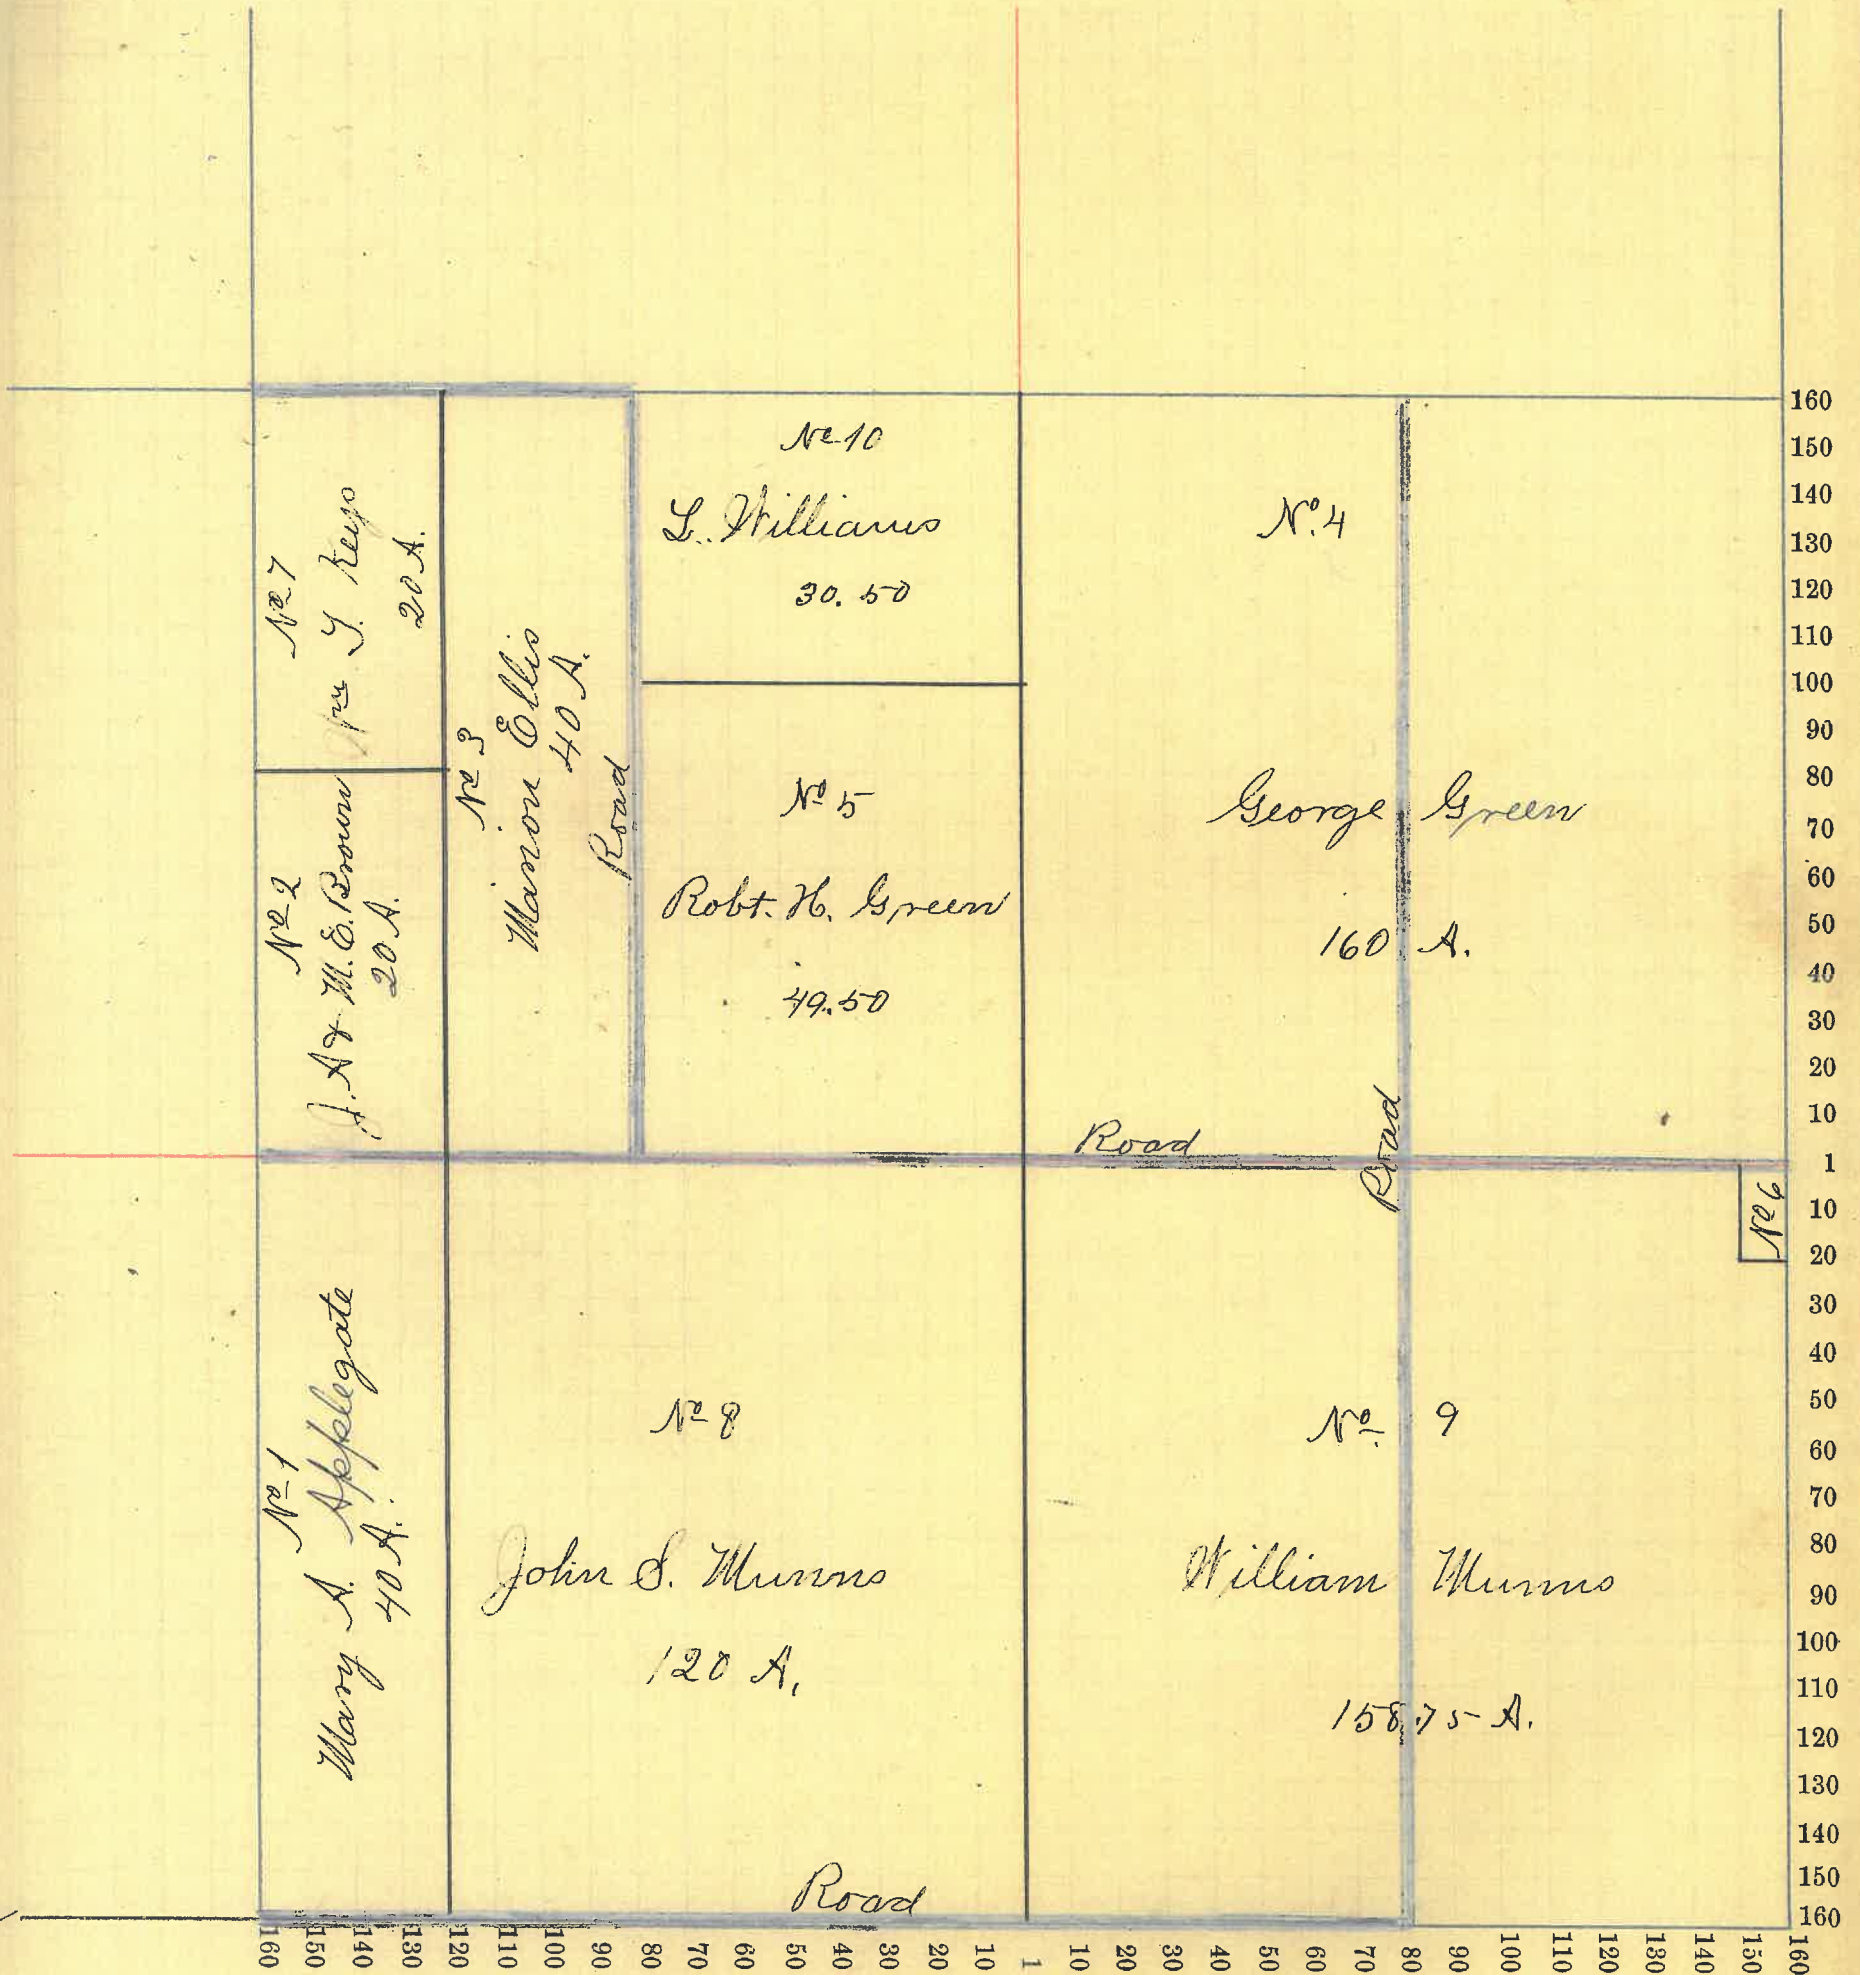 No 7
Wm T. Keys
20 A.
No 2
J. A & M. E. Brown
20 A.
No 3
Marion Ellis
40 A.
Road
No 10
L. Williams
30.50
No 5
Robt. H. Green
49.50
No. 4
George Green
160 A.
Road
Road
No 6
No 1
Mary A. Applegate
40 A.
No 8
John S. Munns
120 A.
No. 9
William Munns
158.75 A.
Road
160
150
140
130
120
110
100
90
80
70
60
50
40
30
20
10
1
10
20
30
40
50
60
70
80
90
100
110
120
130
140
150
160
160 150 140 130 120 110 100 90 80 70 60 50 40 30 20 10 1 10 20 30 40 50 60 70 80 90 100 110 120 130 140 150 160